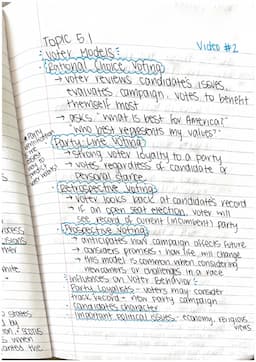 TOPIC 5.1
Video #2
: Voter Models:
Rational Choice Voting
→ voter reviews candidate's issues,
evaluates campaign, votes to benefit
themself most
→ asks "what is best for America?"
"who best represents my values?"
Party-Line Voting
→ strong voter loyalty to a party
→ votes regardless of candidate or
personal stance
Retrospective Voting
→ voter looks back at candidate's record
→ if an open seat election, voter will
see record of current (incumbent) party
Prospective Voting
→ anticipates how campaign affects future
→ considers promises + how life will change
→ this model is common when considering
newcomers or challenges in a race
: Influences on Voter Behavior:
Party Loyalists - voters may consider
track record + how party campaign
Candidates character
Important political issues - economy, religious
views